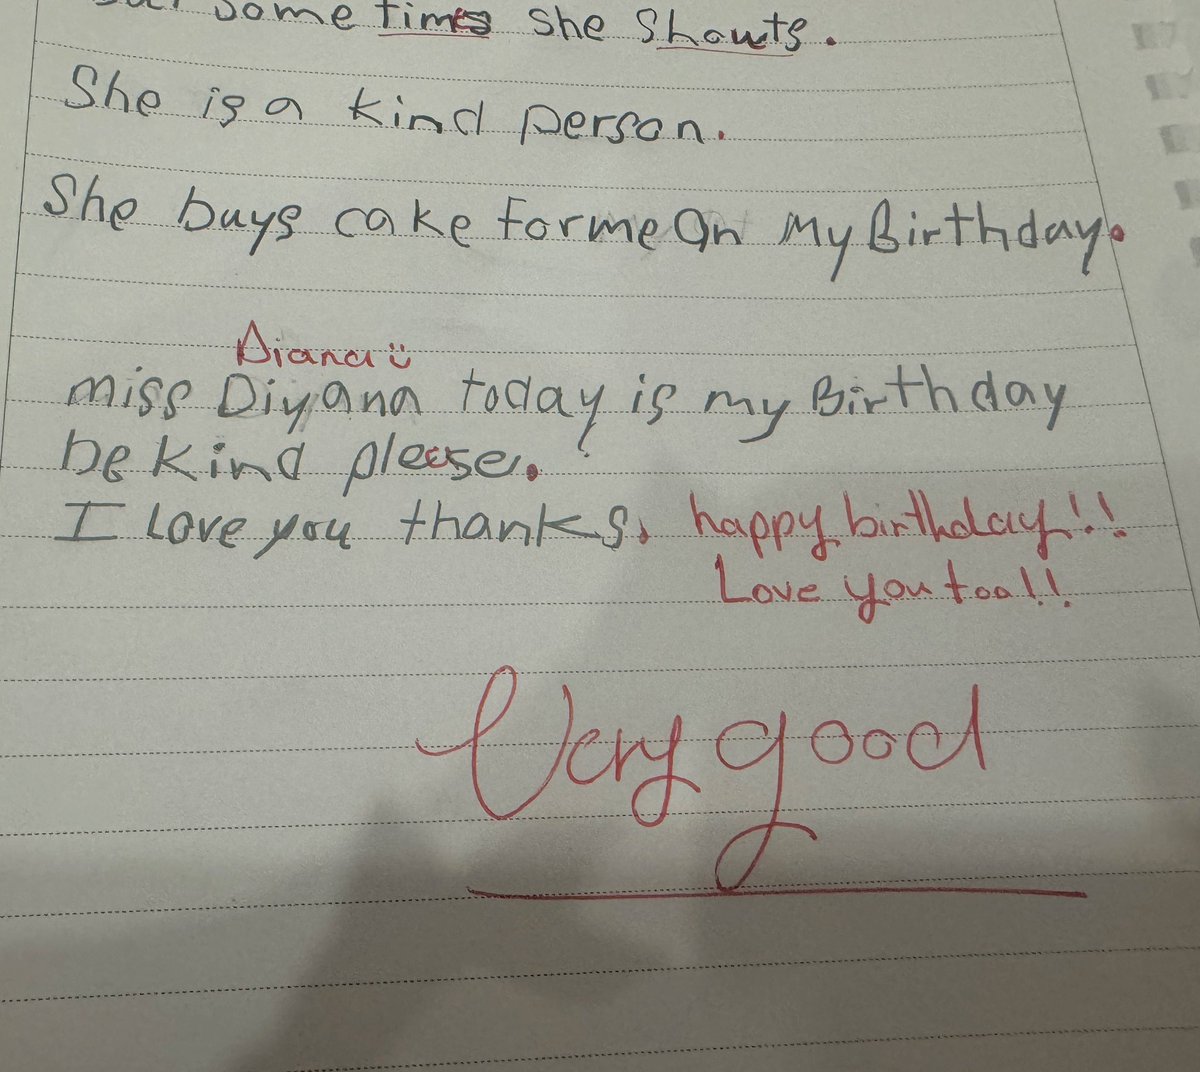 some times she shouts.
She is a kind person.
She buys cake for me on My Birthday.
Diana
miss Diyana today is my Birthday
be kind please.
I Love you thanks. happy birthday!!
Love you too!!
Very good